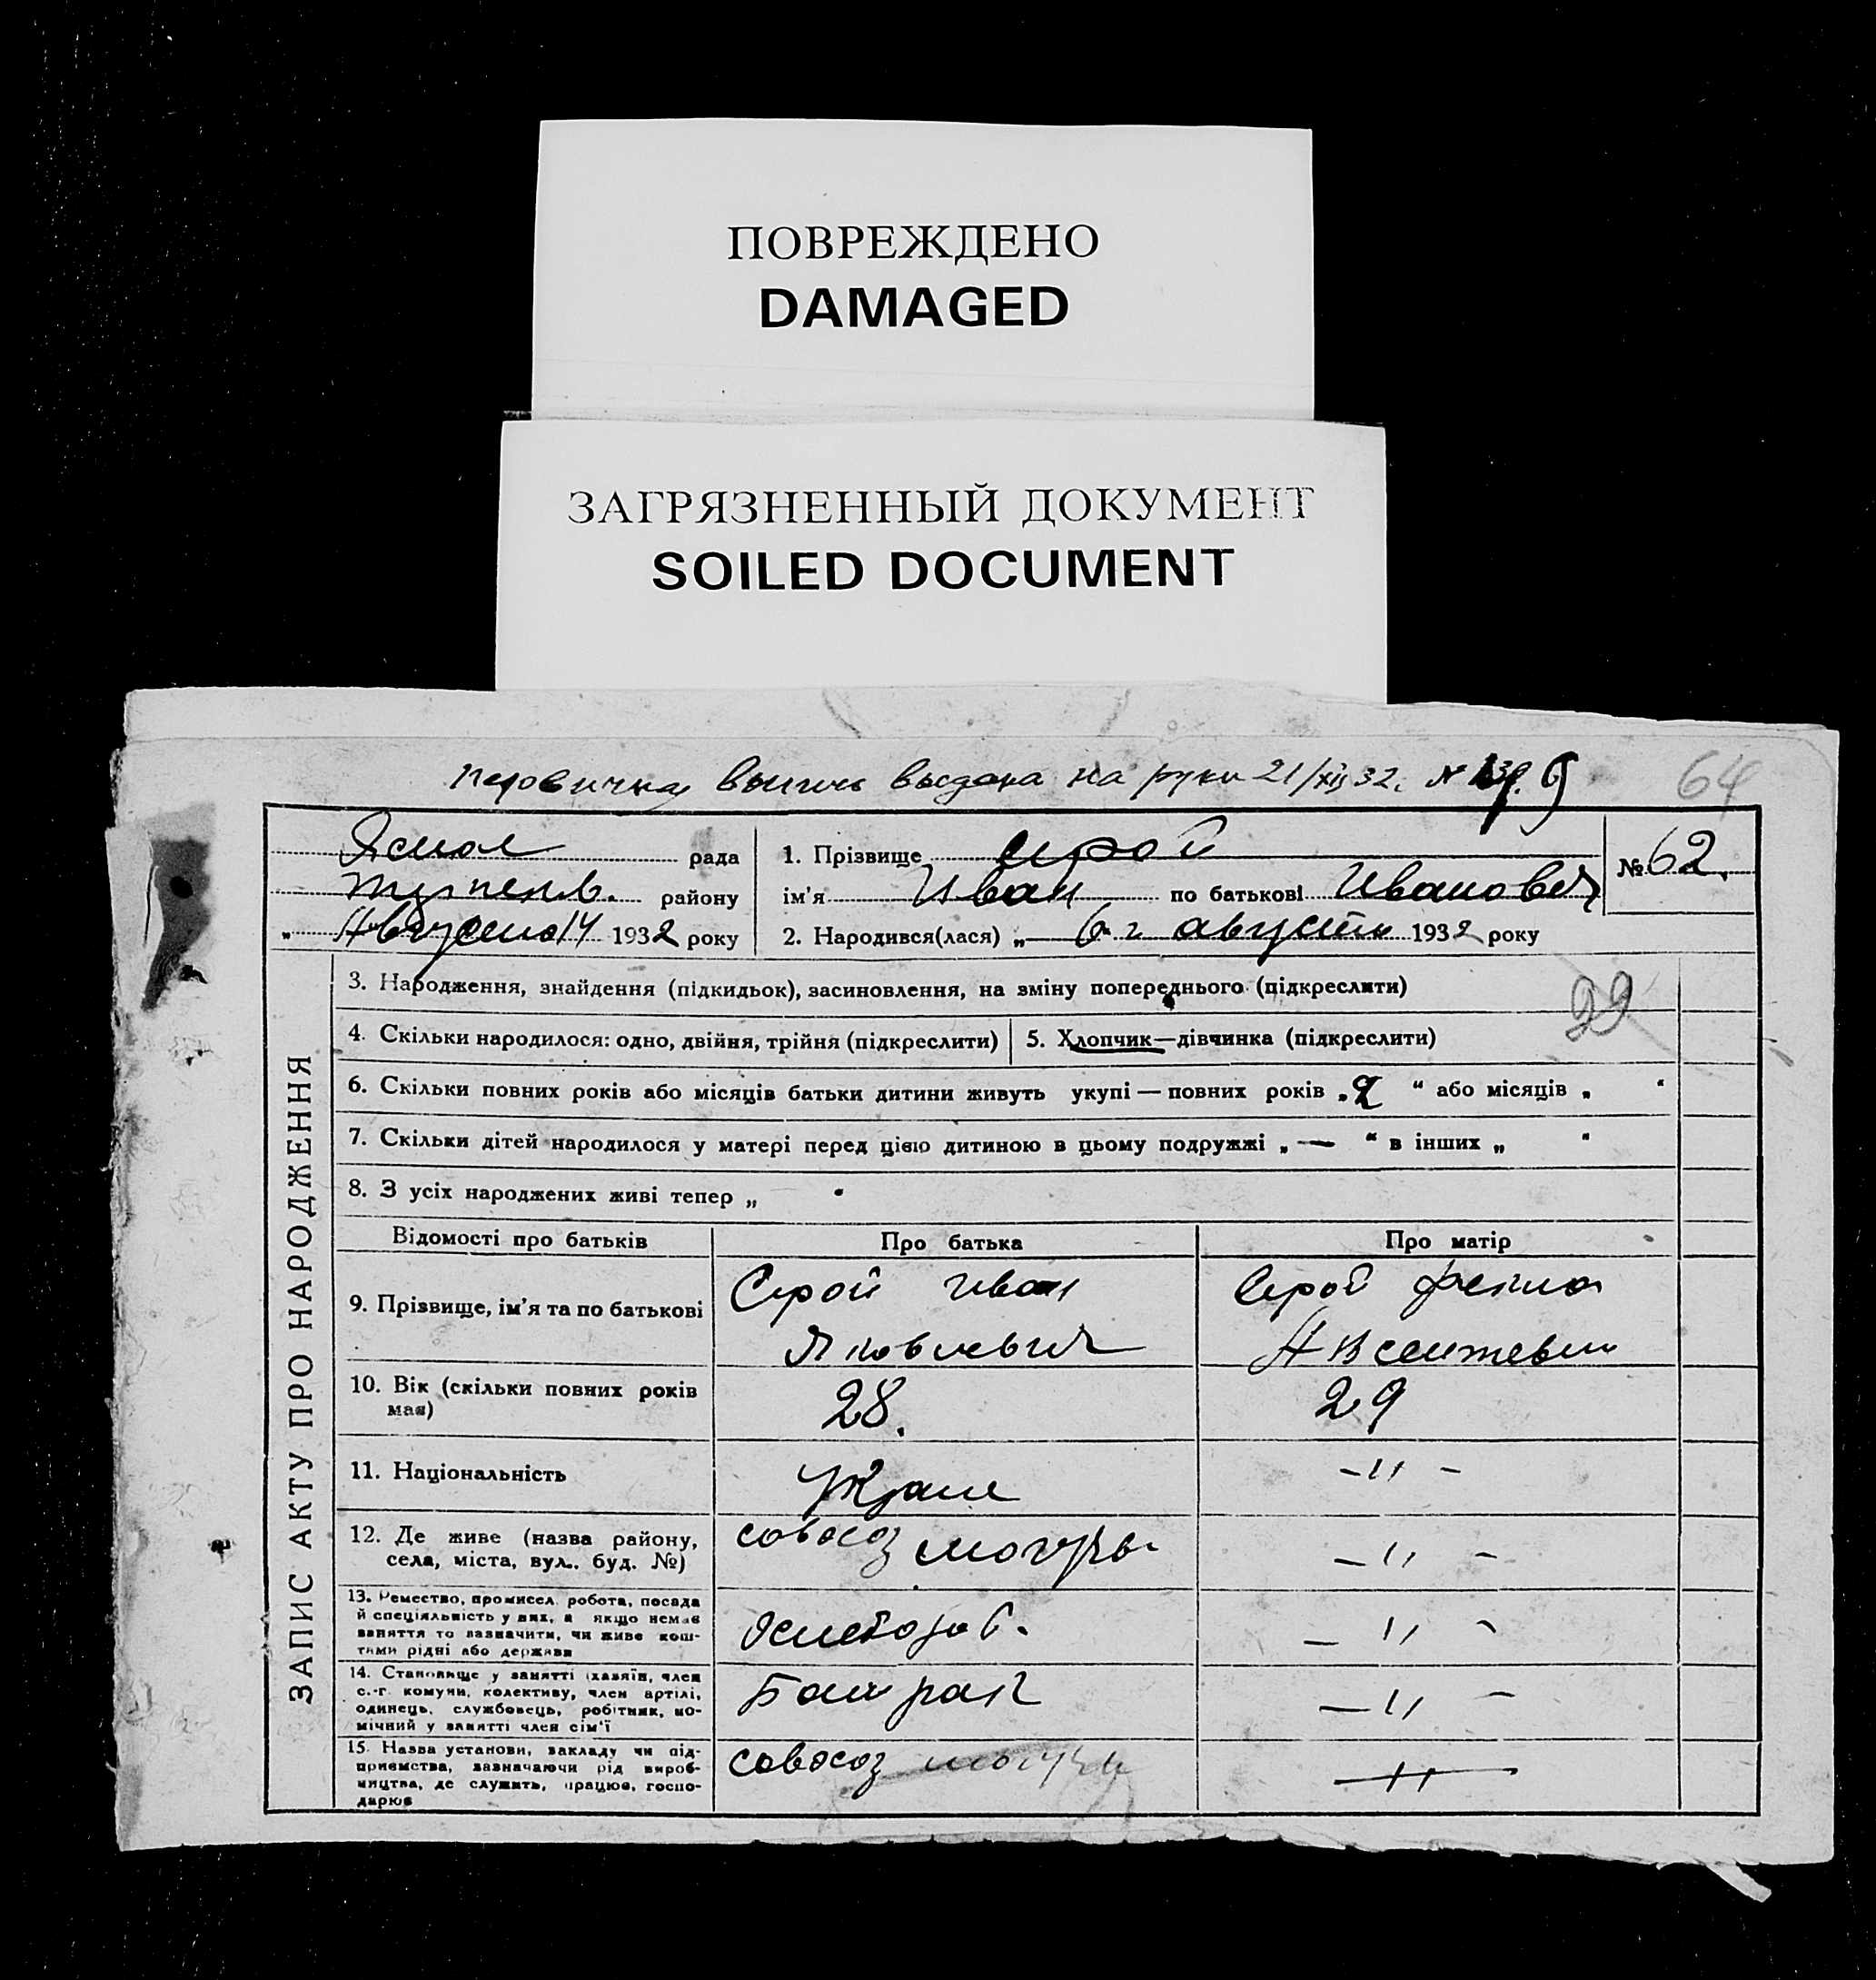 ПОВРЕЖДЕНО
DAMAGED
ЗАГРЯЗНЕННЫЙ ДОКУМЕНТ
SOILED DOCUMENT
выдана на руки 21/XII 32. №
64
рада
району
„ 14 1932 року
1. Прізвище Серой
ім'я Иван по батькові Иванович
2. Народився(лася) „ 6 августа 1932 року
№ 62.
ЗАПИС АКТУ ПРО НАРОДЖЕННЯ
3. Народження, знайдення (підкидьок), засиновлення, на зміну попереднього (підкреслити)
29
4. Скільки народилося: одно, двійня, трійня (підкреслити)
5. Хлопчик—дівчинка (підкреслити)
6. Скільки повних років або місяців батьки дитини живуть укупі — повних років „ 2 “ або місяців „ “
7. Скільки дітей народилося у матері перед цією дитиною в цьому подружжі „ — “ в інших „ “
8. З усіх народжених живі тепер „ “
Відомості про батьків
Про батька
Про матір
9. Прізвище, ім'я та по батькові
Серой Иван
Яковлевич
Серой
10. Вік (скільки повних років
має)
28.
29
11. Національність
– „ –
12. Де живе (назва району,
села, міста, вул., буд. №)
совхоз
– „ –
13. Ремество, промисел, робота, посада
й спеціяльність у них, а якщо немає
заняття то зазначити, чи живе кош-
тами рідні або держави
– „ –
14. Становище у занятті (хазяїн, член
с.-г. комуни, колективу, член артілі,
одинець, службовець, робітник, по-
мічний у занятті член сім'ї
Батрак
– „ –
15. Назва установи, закладу чи під-
приємства, зазначаючи рід вироб-
ництва, де служить, працює, госпо-
дарює
совхоз
– „ –